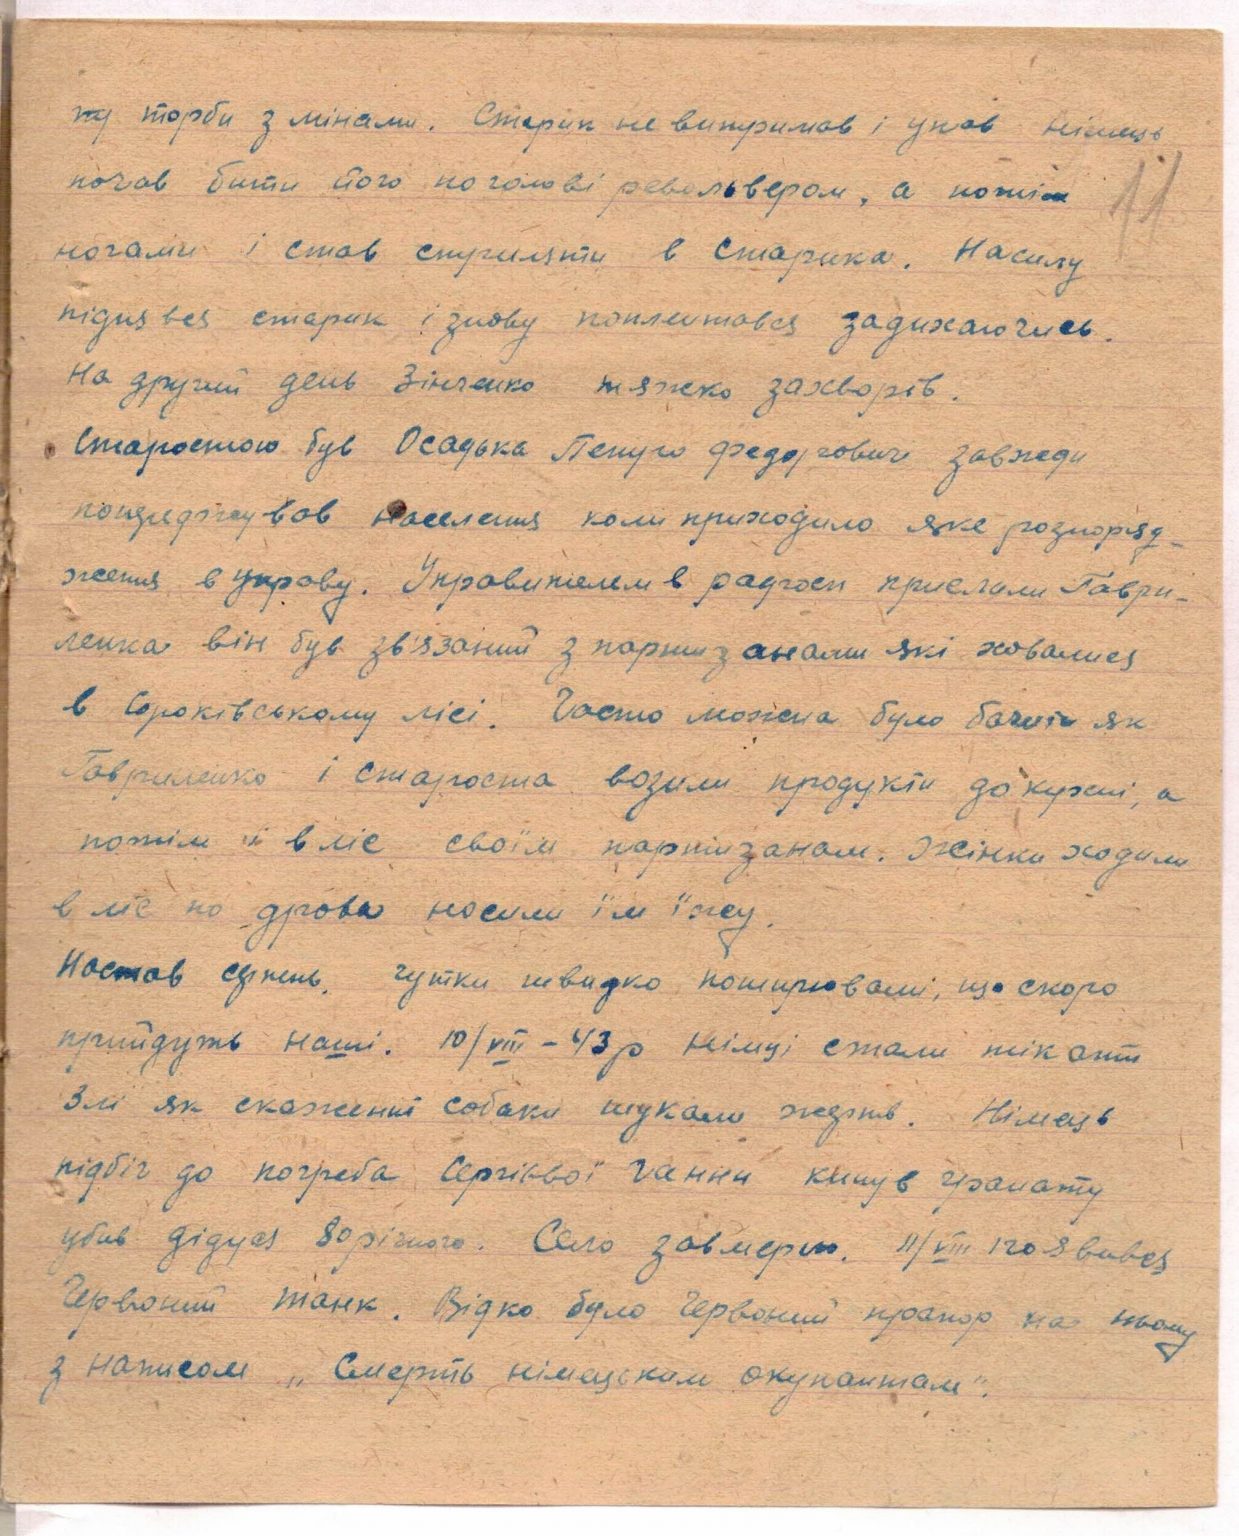 ну торби з мінами. Старик не витримав і упав німець
11
почав бити його по голові револьвером, а потім
ногами і став стриляти в старика. Насилу
піднявся старик і знову поплентався задихаючись.
На другий день Зінченко тяжко захворів.
Старостою був Осадька Петро Федорович завжди
попереджував населення коли приходило яке розпоряд-
ження в управу. Управителем в радгосп прислали Гаври-
ленка він був зв'язаний з партизанами які ховалися
в Сороківському лісі. Часто можна було бачить як
Гавриленко і староста возили продукти до кухні, а
потім й в ліс своїм партизанам. Жінки ходили
в ліс по дрова носили їм їжу.
Настав серпень. Чутки швидко поширювалі, що скоро
прийдуть наші. 10/VIII – 43 р німці стали тікати
Злі як скаженні собаки шукали жертв. Німець
підбіг до погреба Сергієвої Ганни кинув гранату
убив дідуся 80 річного. Село завмерло. 11/VIII появився
Червоний танк. Відко було червоний прапор на ньому
з написом „Смерть німецьким окупантам".